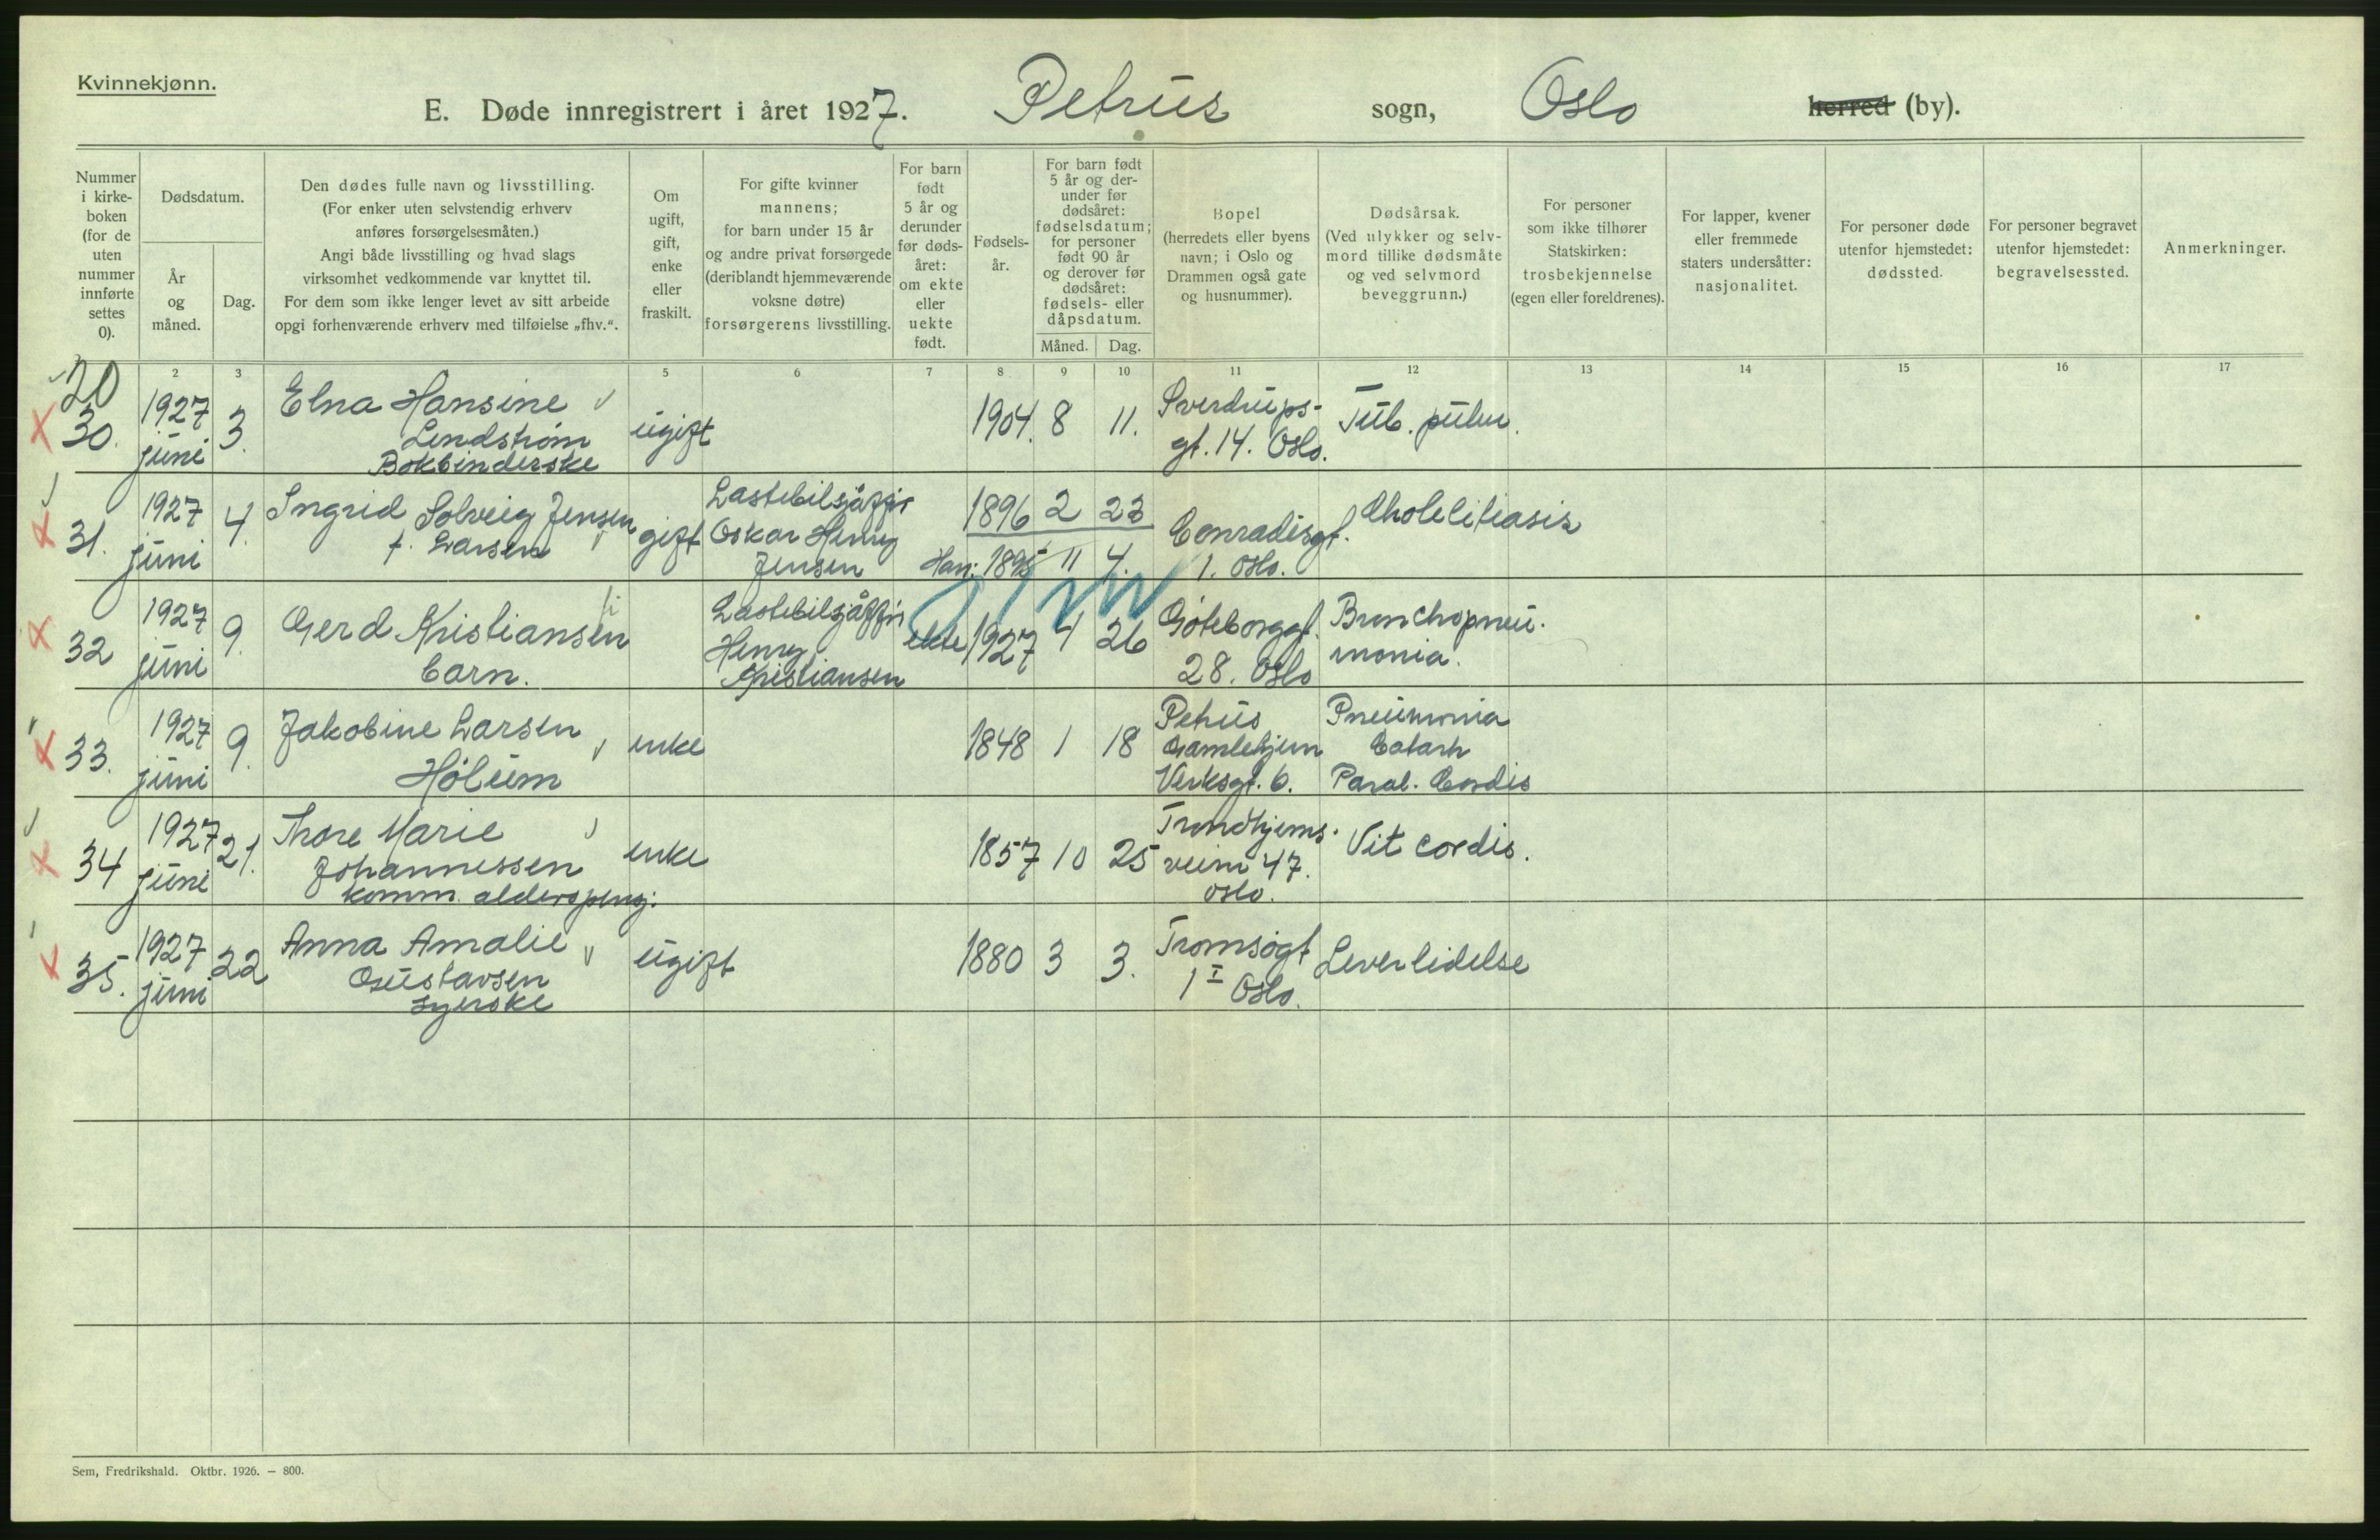 Kvinnekjønn.
E. Døde innregistrert i året 1927. Petrus sogn, Oslo herred (by).
Nummer i kirke-boken (for de uten nummer innførte settes 0).
Dødsdatum.
År og måned.
Dag.
Den dødes fulle navn og livsstilling.
(For enker uten selvstendig erhverv
anføres forsørgelsesmåten.)
Angi både livsstilling og hvad slags
virksomhet vedkommende var knyttet til.
For dem som ikke lenger levet av sitt arbeide
opgi forhenværende erhverv med tilføielse „fhv.".
Om
ugift,
gift,
enke
eller
fraskilt.
For gifte kvinner
mannens;
for barn under 15 år
og andre privat forsørgede
(deriblandt hjemmeværende
voksne døtre)
forsørgerens livsstilling.
For barn
født
5 år og
derunder
før døds-
året:
om ekte
eller
uekte
født.
Fødsels-
år.
For barn født
5 år og der-
under før
dødsåret:
fødselsdatum;
for personer
født 90 år
og derover før
dødsåret:
fødsels- eller
dåpsdatum.
Måned. Dag.
Bopel
(herredets eller byens
navn; i Oslo og
Drammen også gate
og husnummer).
Dødsårsak.
(Ved ulykker og selv-
mord tillike dødsmåte
og ved selvmord
beveggrunn.)
For personer
som ikke tilhører
Statskirken:
trosbekjennelse
(egen eller foreldrenes).
For lapper, kvener
eller fremmede
staters undersåtter:
nasjonalitet.
For personer døde
utenfor hjemstedet:
dødssted.
For personer begravet
utenfor hjemstedet:
begravelsessted.
Anmerkninger.
2 3 5 6 7 8 9 10 11 12 13 14 15 16 17
20
30.
1927
juni
3.
Elna Hansine
Lindstrøm
Bokbinderske
ugift
1904. 8 11.
Sverdrups-
gt. 14. Oslo.
Tub. pulm.
31.
1927
juni
4.
Ingrid Solveig Jensen
f. Larsen
gift
Lastebilsjåffør
Oskar Henry
Jensen
1896 2 23
Han: 1895 11 4.
Conradisgt.
1. Oslo.
Cholelitiasis
32
1927
juni
9.
Gerd Kristiansen
barn.
Lastebilsjåffør
Henry
Kristiansen
ekte
1927 4 26
Gøteborggt.
28. Oslo
Bronchopneu-
monia.
33.
1927
juni
9.
Jakobine Larsen
Hølum
enke
1848 1 18
Petrus
Gamlehjem
Verksgt. 6.
Pneumonia
Catarh
Paral. Cordis
34
1927
juni
21.
Thore Marie
Johannessen
komm. alderspensj.
enke
1857 10 25
Trondhjems-
veien 47.
Oslo.
Vit cordis.
35.
1927
juni
22
Anna Amalie
Gustavsen
syerske
ugift
1880 3 3.
Tromsøgt
1 I Oslo.
Leverlidelse
Sem, Fredrikshald. Oktbr. 1926. — 800.